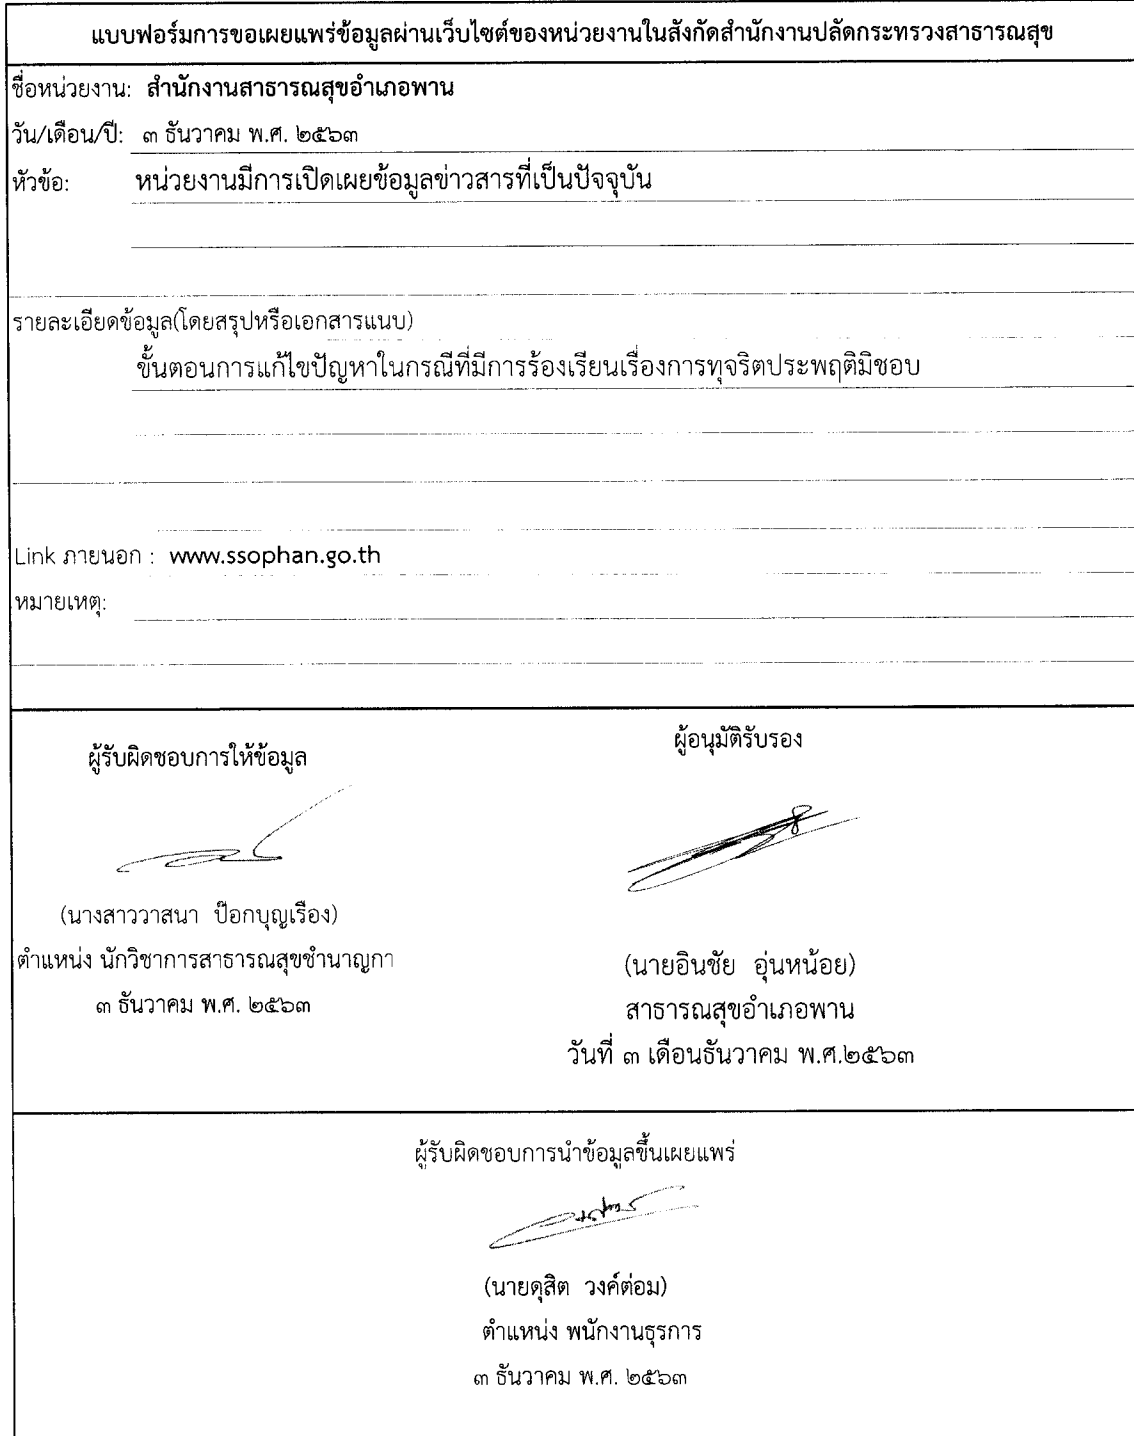 แบบฟอร์มการขอเผยแพร่ข้อมูลผ่านเว็บไซต์ของหน่วยงานในสังกัดสำนักงานปลัดกระทรวงสาธารณสุข
ชื่อหน่วยงาน: สำนักงานสาธารณสุขอำเภอพาน
วัน/เดือน/ปี: ๓ ธันวาคม พ.ศ. ๒๕๖๓
หัวข้อ: หน่วยงานมีการเปิดเผยข้อมูลข่าวสารที่เป็นปัจจุบัน
รายละเอียดข้อมูล(โดยสรุปหรือเอกสารแนบ)
ขั้นตอนการแก้ไขปัญหาในกรณีที่มีการร้องเรียนเรื่องการทุจริตประพฤติมิชอบ
Link ภายนอก : www.ssophan.go.th
หมายเหตุ:
ผู้รับผิดชอบการให้ข้อมูล
(นางสาววาสนา ป๊อกบุญเรือง)
ตำแหน่ง นักวิชาการสาธารณสุขชำนาญกา
๓ ธันวาคม พ.ศ. ๒๕๖๓
ผู้อนุมัติรับรอง
(นายอินชัย อุ่นหน้อย)
สาธารณสุขอำเภอพาน
วันที่ ๓ เดือนธันวาคม พ.ศ.๒๕๖๓
ผู้รับผิดชอบการนำข้อมูลขึ้นเผยแพร่
(นายดุสิต วงค์ต่อม)
ตำแหน่ง พนักงานธุรการ
๓ ธันวาคม พ.ศ. ๒๕๖๓